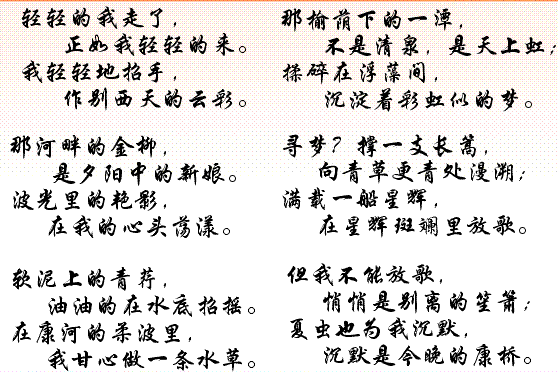 轻轻的我走了，
正如我轻轻的来。
我轻轻地招手，
作别西天的云彩。
那河畔的金柳，
是夕阳中的新娘。
波光里的艳影，
在我的心头荡漾。
软泥上的青荇，
油油的在水底招摇。
在康河的柔波里，
我甘心做一条水草。
那榆荫下的一潭，
不是清泉，是天上虹；
揉碎在浮藻间，
沉淀着彩虹似的梦。
寻梦？撑一支长篙，
向青草更青处漫溯；
满载一船星辉，
在星辉斑斓里放歌。
但我不能放歌，
悄悄是别离的笙箫；
夏虫也为我沉默，
沉默是今晚的康桥。